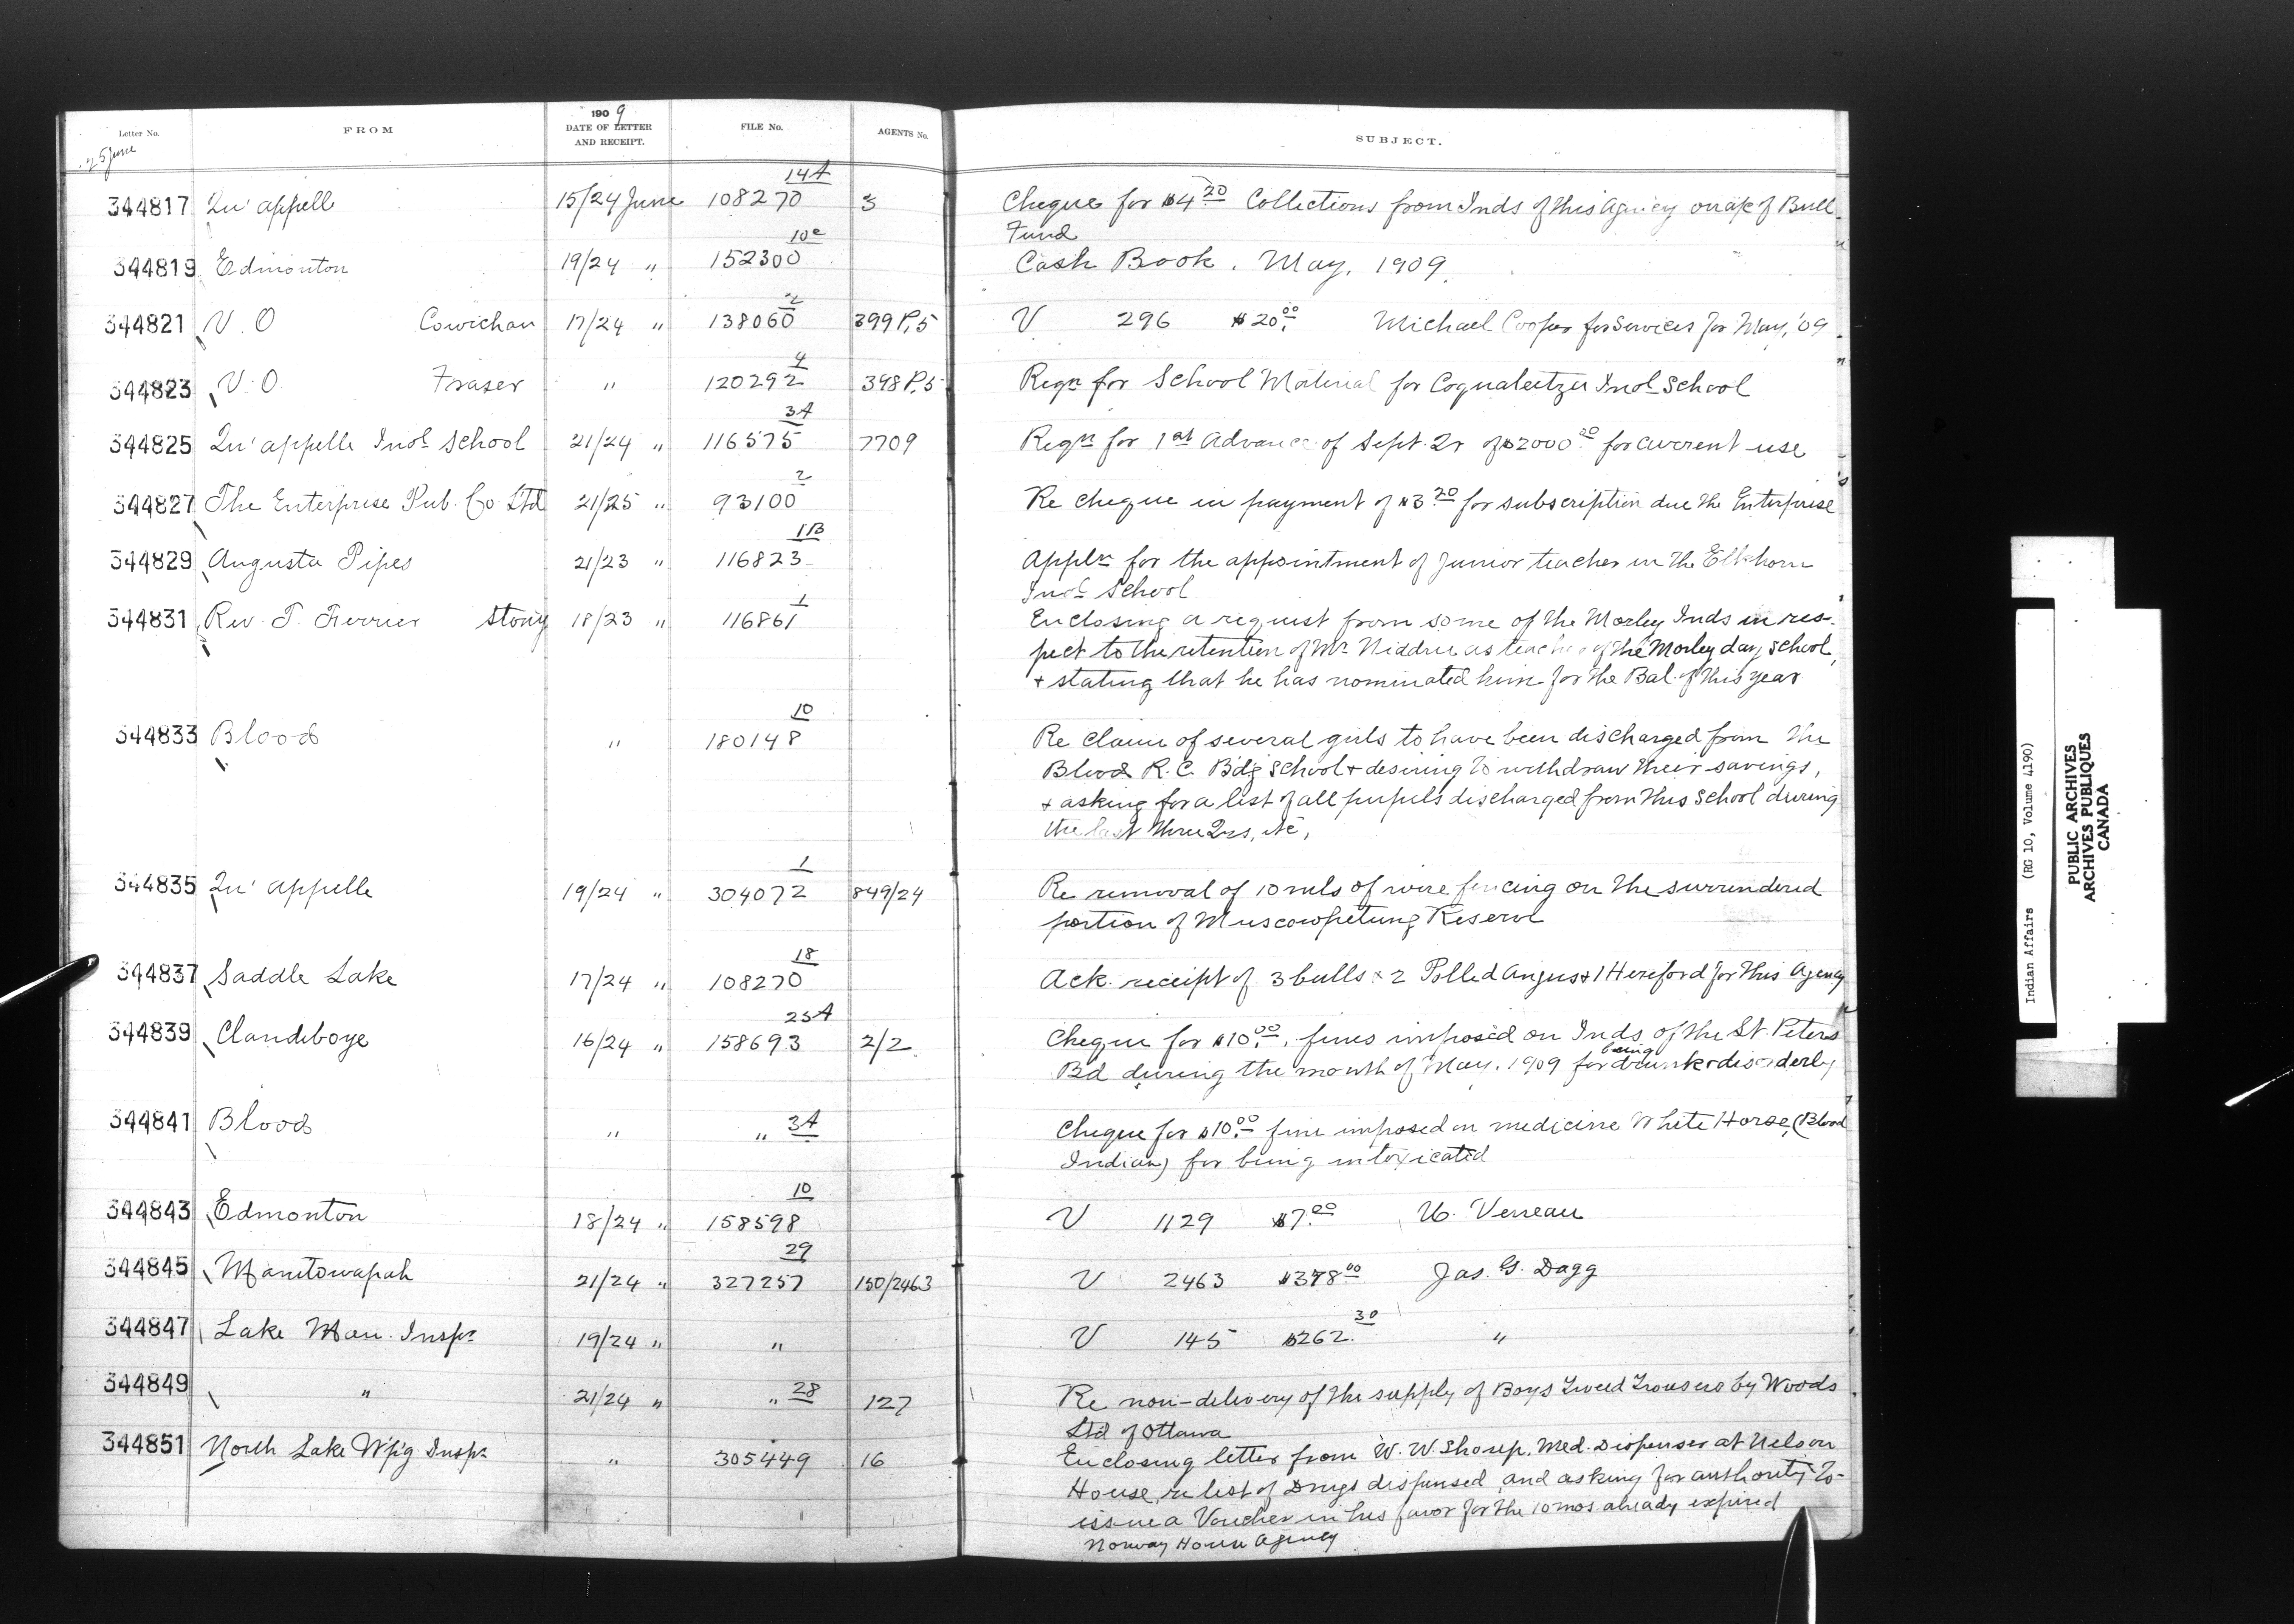 1909
Letter No. FROM DATE OF LETTER AND RECEIPT. FILE No. AGENTS No. SUBJECT.
25 June
14A
344817 Qu'appelle 15/24 June 108270 3 Cheque for $4.20 Collections from Inds of this Agency on a/c of Bull
Fund
10c
344819 Edmonton 19/24 " 152300 Cash Book. May, 1909.
2
344821 V.O Cowichan 17/24 " 138060 399 P.5 V 296 $20.00 Michael Cooper for Services for May, '09
4
344823 V.O. Fraser " 120292 398 P.5 Reqn for School Material for Coqualeetza Indl School
3A
344825 Qu'appelle Indl School 21/24 " 116575 7709 Reqn for 1st Advance of Sept. Qr of $2000.00 for current use
2
344827 The Enterprise Pub. Co Ltd 21/25 " 93100 Re cheque in payment of $3.20 for subscription due the Enterprise
1B
344829 Augusta Pipes 21/23 " 116823 Appln for the appointment of Junior teacher in the Elkhorn
Indl School
1
344831 Rev. T. Ferrier Stony 18/23 " 116861 Enclosing a request from some of the Morley Inds in res-
pect to the retention of Mr Niddrie as teacher of the Morley day school,
+ stating that he has nominated him for the Bal. of this year
10
344833 Blood " 180148 Re claim of several girls to have been discharged from the
Blood R.C. Bdg School + desiring to withdraw their savings,
+ asking for a list of all pupils discharged from this School during
the last three Qrs, etc,
1
344835 Qu'appelle 19/24 " 304072 849/24 Re removal of 10 mls of wire fencing on the surrendered
portion of Muscowpetung Reserve
18
344837 Saddle Lake 17/24 " 108270 Ack. receipt of 3 bulls 2 Polled Angus + 1 Hereford for this Agency
23A
344839 Clandeboye 16/24 " 158693 2/2 Cheque for $10.00, fines imposed on Inds of the St. Peters
Bd during the month of May, 1909 for being drunk + disorderly
344841 Blood " " 3A Cheque for $10.00 fine imposed on medicine White Horse, (Blood
Indian) for being intoxicated
10
344843 Edmonton 18/24 " 158598 V 1129 $7.00 U. Verreau
29
344845 Manitowapah 21/24 " 327257 150/2463 V 2463 $378.00 Jas. G. Dagg
344847 Lake Man. Inspr 19/24 " " V 145 $262.30 "
344849 " 21/24 " " 28 127 Re non-delivery of the supply of Boys Tweed Trousers by Woods
Ltd of Ottawa
344851 North Lake W'p'g Inspr " 305449 16 Enclosing letter from W.W. Shoup, Med. Dispenser at Nelson
House, re list of Drugs dispensed, and asking for authority to
issue a Voucher in his favor for the 10 mos. already expired
Norway House Agency
Indian Affairs (RG 10, Volume 4190)
PUBLIC ARCHIVES
ARCHIVES PUBLIQUES
CANADA